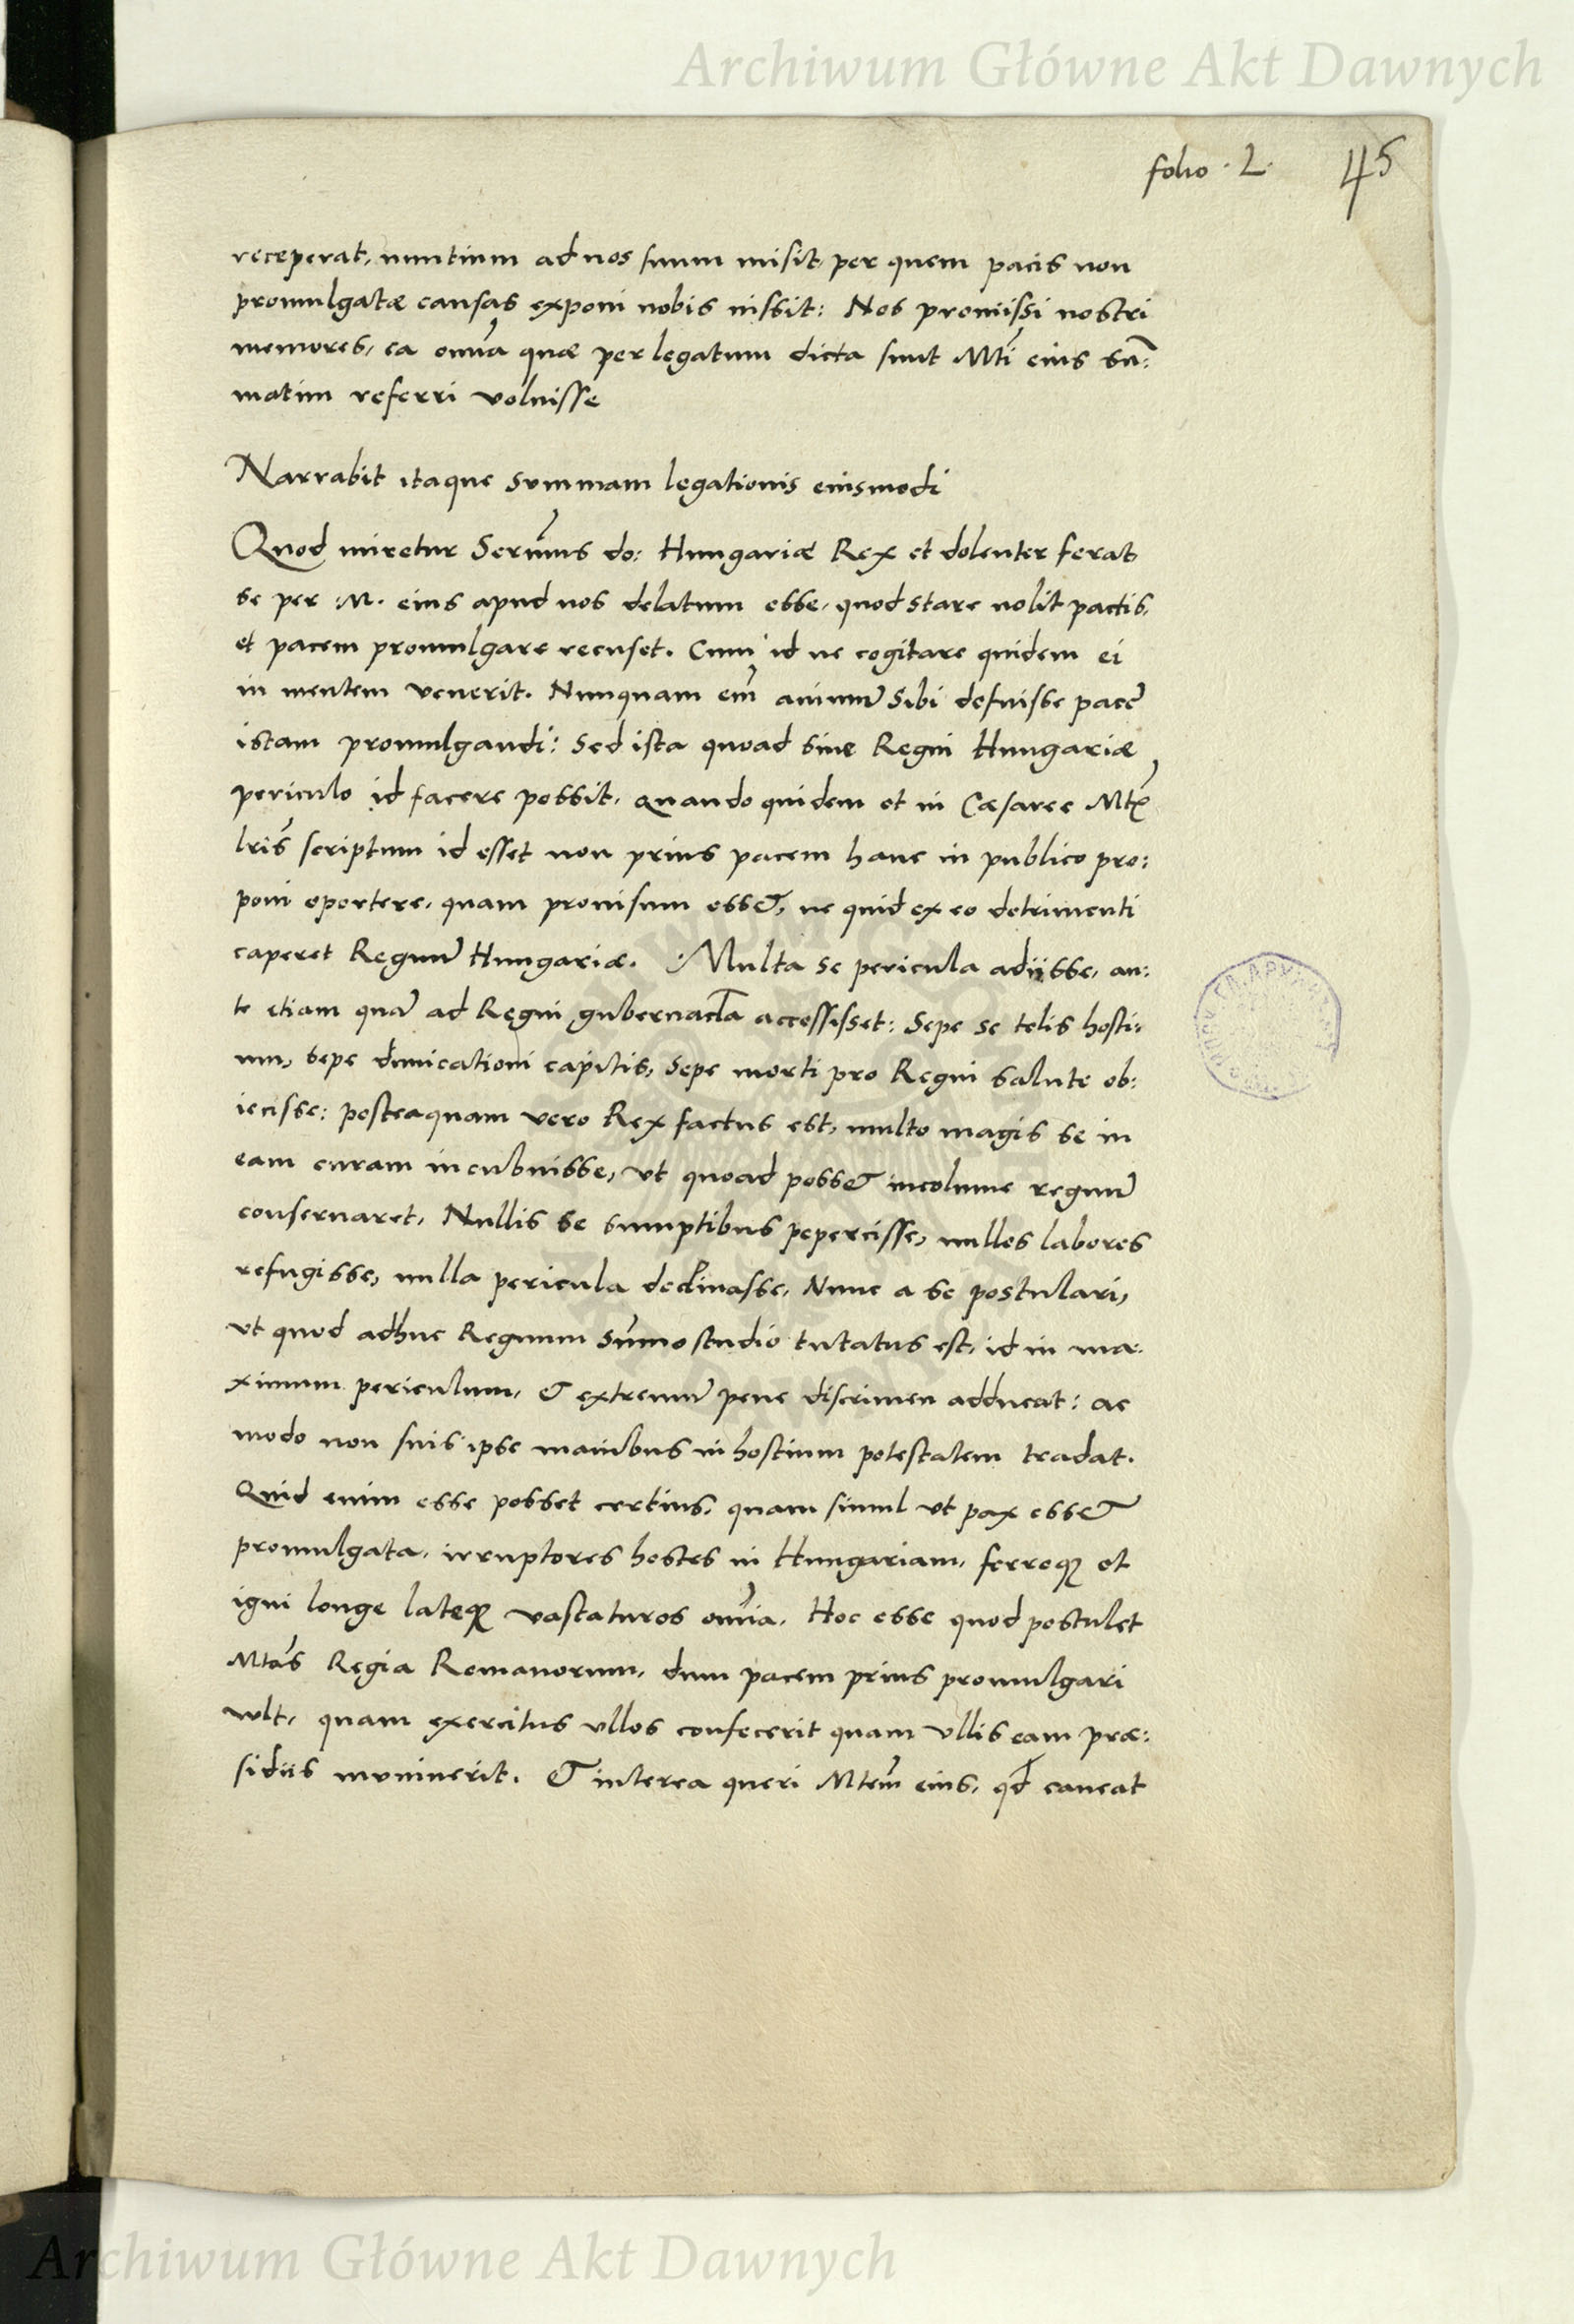 Archiwum Główne Akt Dawnych
folio · L · 45
receperat, nuntium ad nos suum misit, per quem pacis non
promulgatæ causas exponi nobis iussit: Nos promissi nostri
memores, ea omia quæ per legatum dicta sunt Mti eius sū:
matim referri voluisse
Narrabit itaque summam legationis eiusmodi
Quod miretur Sermus do: Hungariæ Rex et dolenter ferat
se per M. eius apud nos delatum esse, quod stare nolit pactis,
et pacem promulgare recuset. Cum id ne cogitare quidem ei
in mentem venerit. Nunquam em̄ animū sibi defuisse pacē
istam promulgandi: Sed ista quoad sine Regni Hungariæ
periculo id facere possit, quando quidem et in Cæsaree Mtis
lris scriptum id esset non prius pacem hanc in publico pro:
poni oportere, quam prouisum esset, ne quid ex eo detrimenti
caperet Regnū Hungariæ. Multa se pericula adiisse, an:
te etiam quā ad Regni gubernacla accessisset: Sepe se telis hosti:
um, sepe dimicationi capitis, sepe morti pro Regni salute ob:
iecisse: posteaquam vero Rex factus est, multo magis se in
eam curam incubuisse, vt quoad posset incolume regnū
conseruaret, Nullis se sumptibus pepercisse, nullos labores
refugisse, nulla pericula declinasse, Nunc a se postulari,
vt quod adhuc Regnum sūmo studio tutatus est, id in ma:
ximum periculum, et extremū pene discrimen adducat: ac
modo non suis ipse manibus in hostium potestatem tradat.
Quid enim esse posset certius, quam simul vt pax esset
promulgata, irruptores hostes in Hungariam, ferroq3 et
igni longe lateq3 vastaturos omia. Hoc esse quod postulet
Mtas Regia Romanorum, dum pacem prius promulgari
vult, quam exercitus vllos confecerit quam vllis eam præ:
sidiis muniuerit. Et interea queri Mtem eius, qd caueat
Archiwum Główne Akt Dawnych